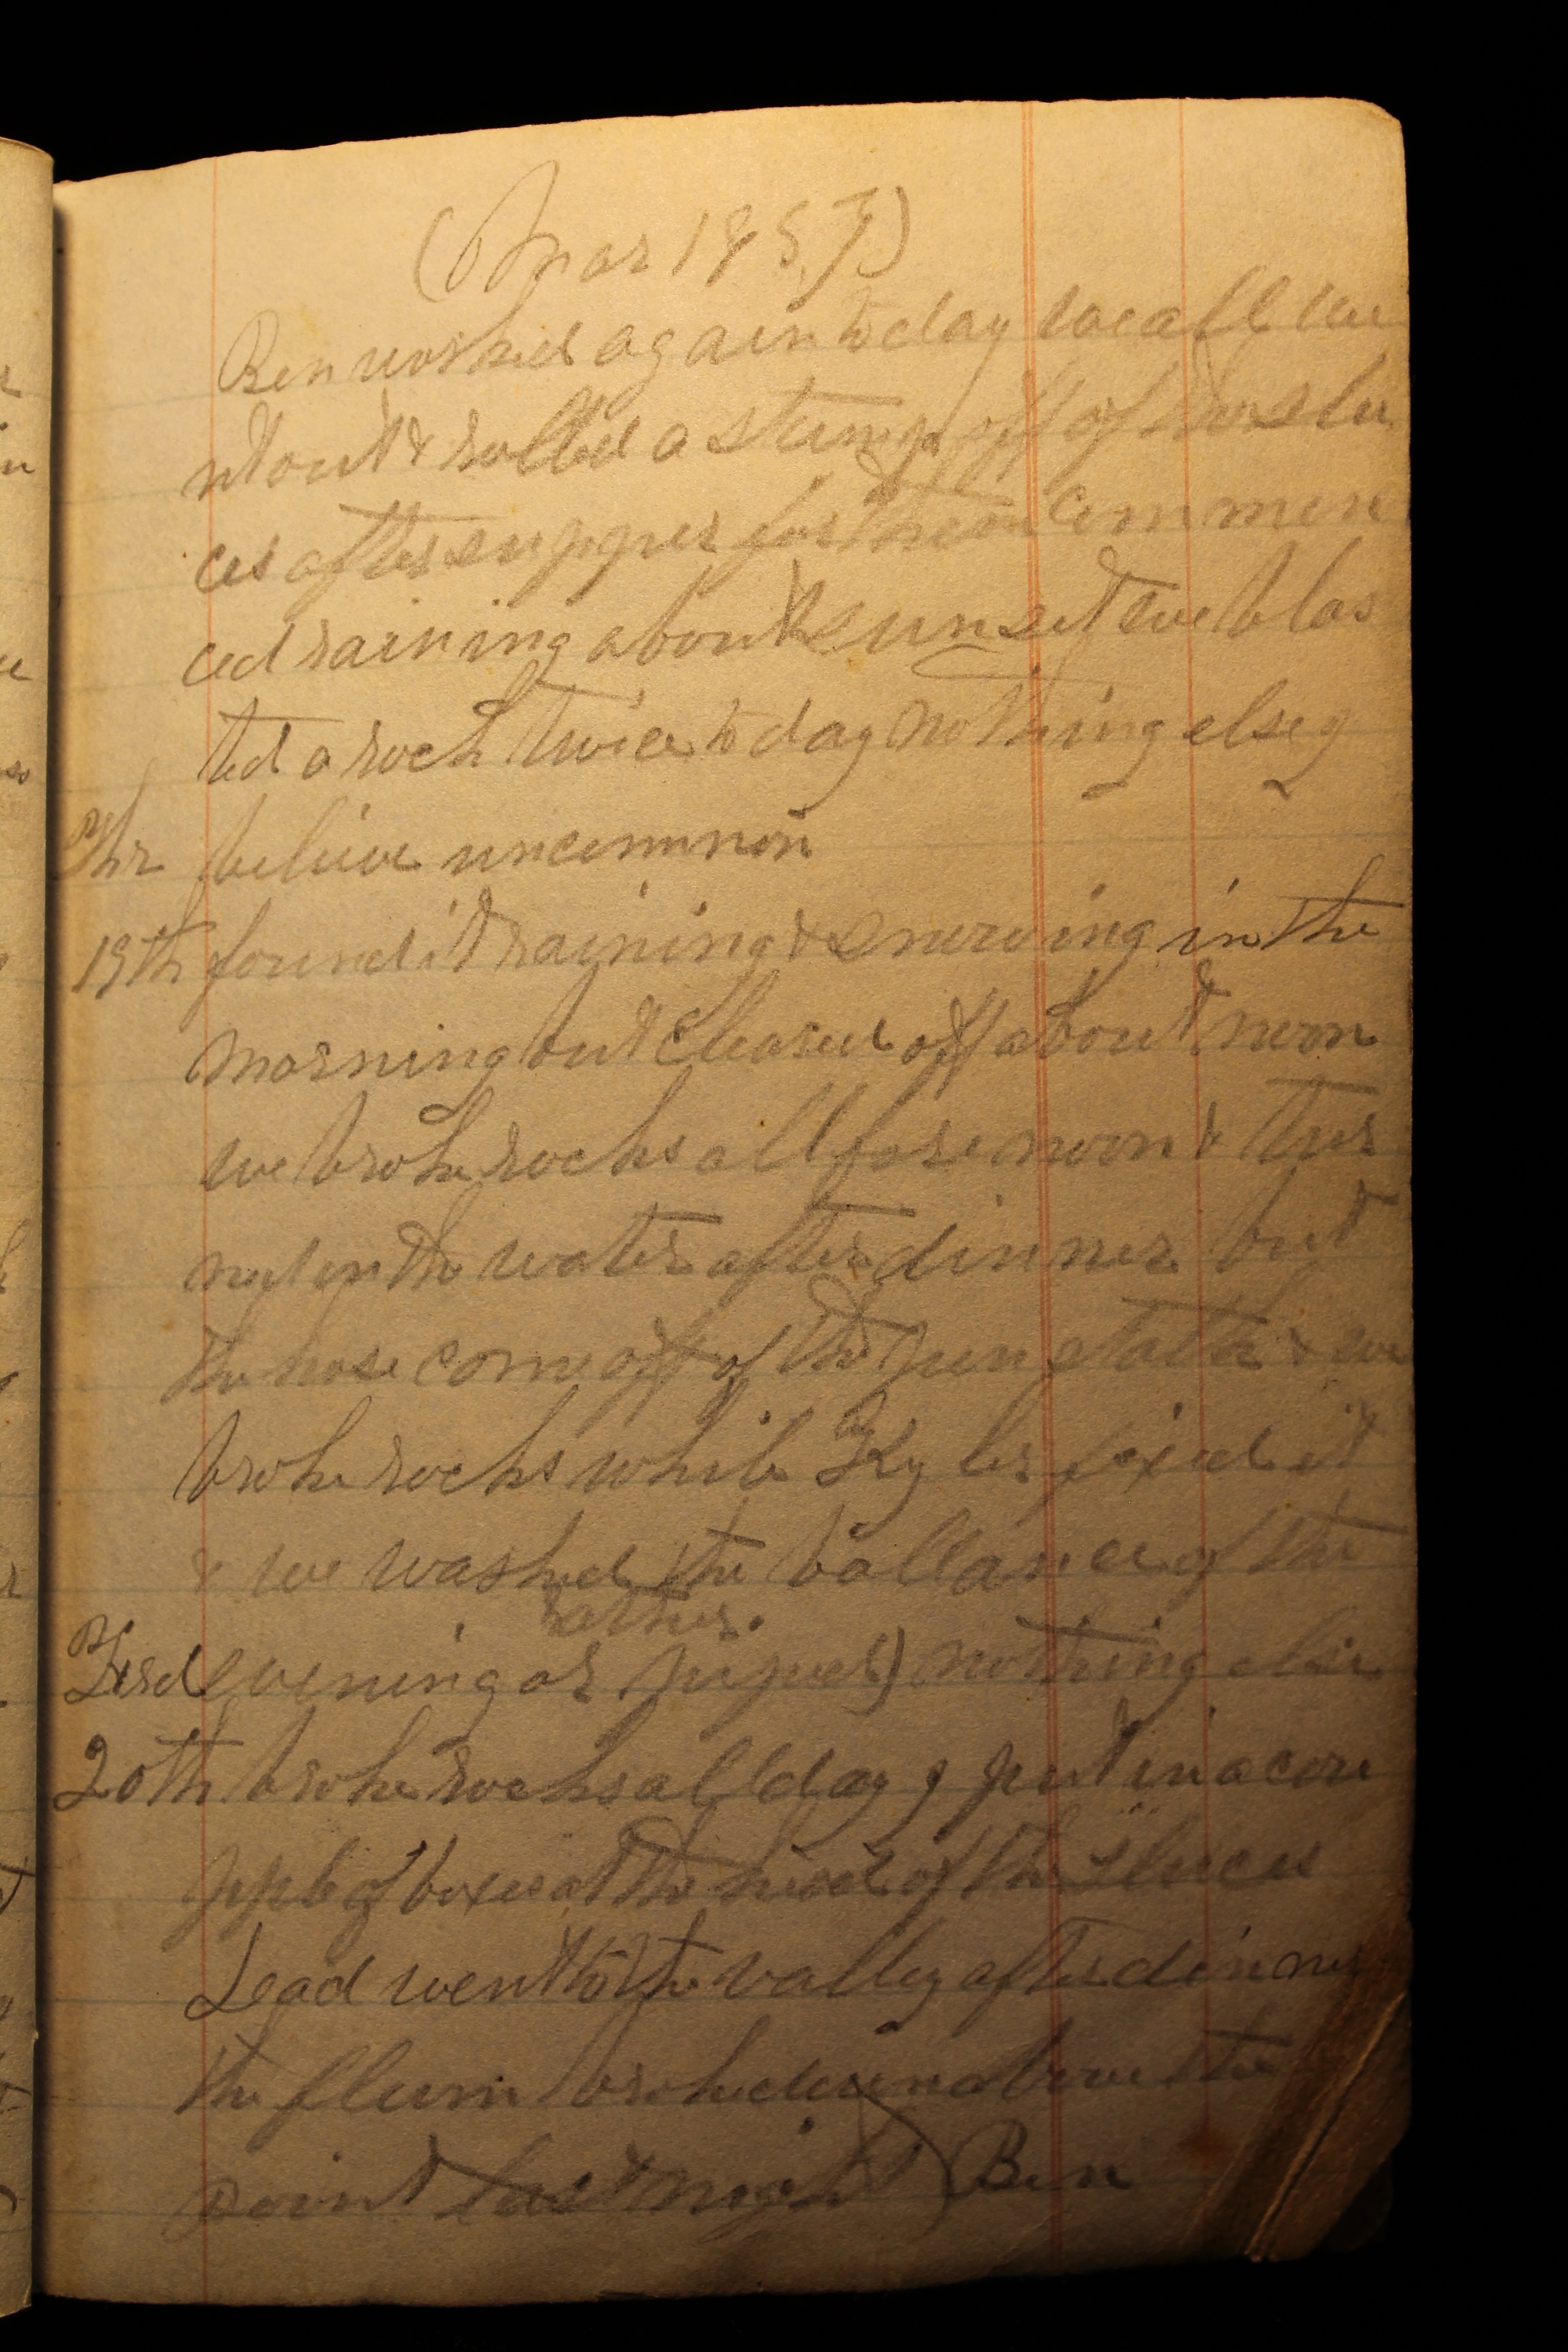 (Mar 1857)
Ben washed again to day we all we
nt out & rolled a stump off of the slu
ces after supper for them commen
ced raining about sunset we blas
ted a rock twice to day nothing else y
Thr believe uncommon
19th found it raining & snowing in the
morning but cleared off about noon
we broke rocks all forenoon & tur
ned in the water after dinner but
the hose come off of the penstalk & we
broke rocks while Kyler fixed it
& we washed the ballance of the
rather
Frd evening or piped) nothing else
20th broke rocks all day & put in a cou
pple of boxes at the head of the sluces
Lead went to the valley after dinner
the flum broke down above the
point last night) Ben